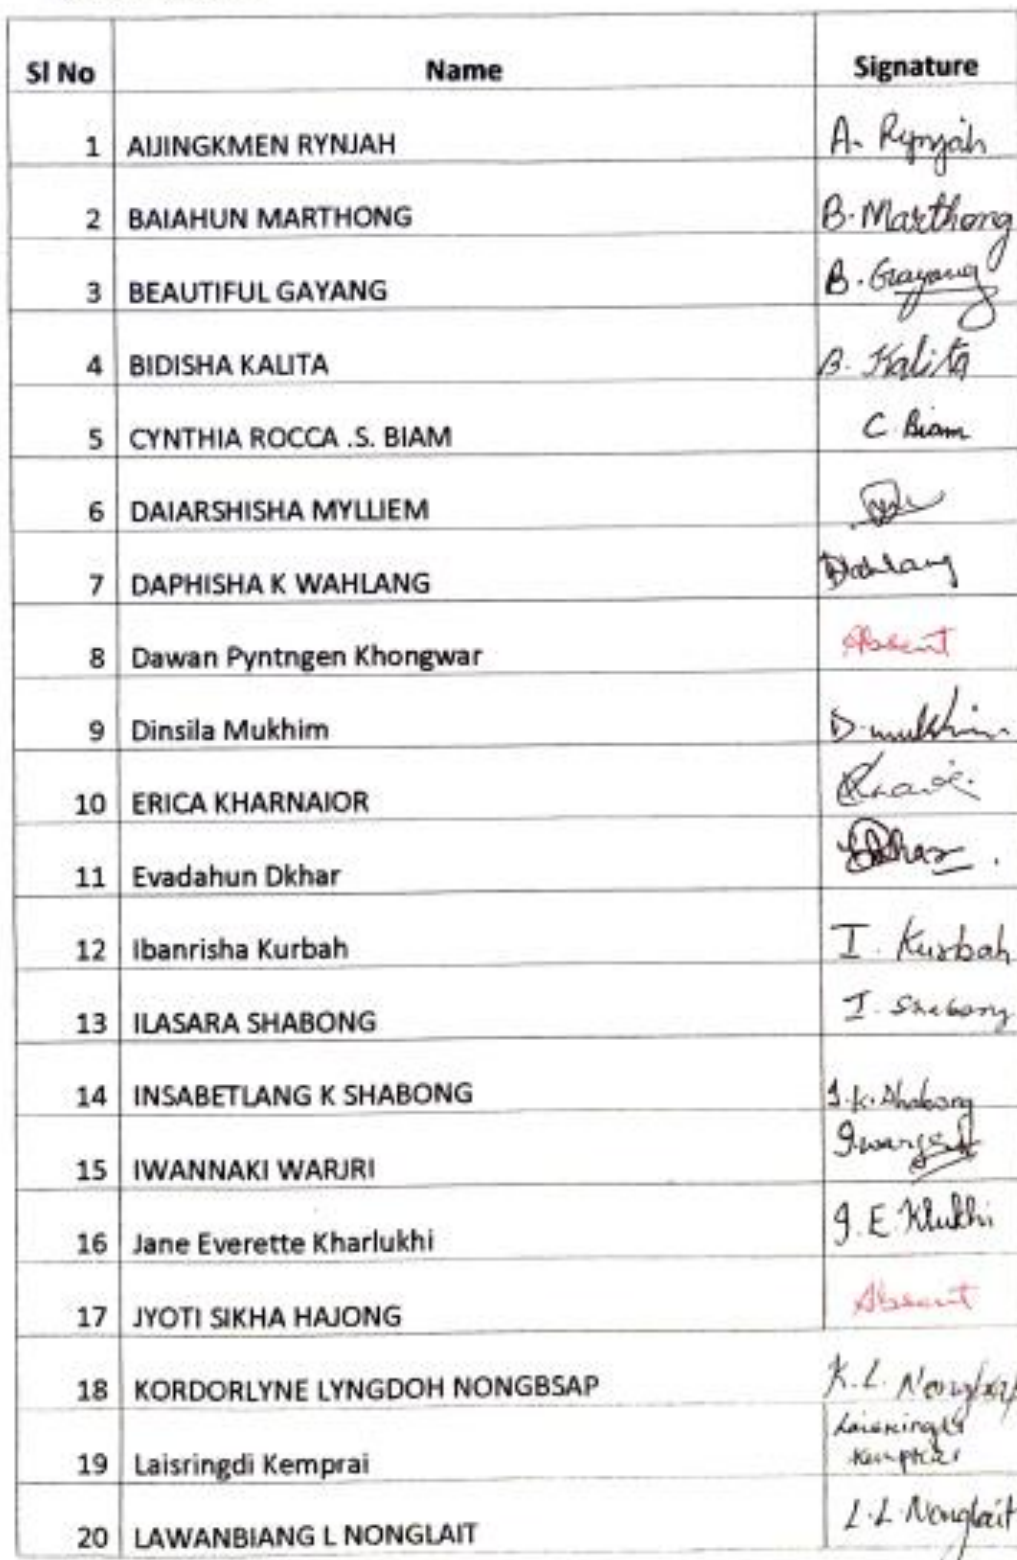 Sl No Name Signature
1 AIJINGKMEN RYNJAH A. Rynjah
2 BAIAHUN MARTHONG B. Marthong
3 BEAUTIFUL GAYANG B. Gayang
4 BIDISHA KALITA B. Kalita
5 CYNTHIA ROCCA .S. BIAM C. Biam
6 DAIARSHISHA MYLLIEM
7 DAPHISHA K WAHLANG
8 Dawan Pyntngen Khongwar Absent
9 Dinsila Mukhim D. mukhim
10 ERICA KHARNAIOR
11 Evadahun Dkhar
12 Ibanrisha Kurbah I. Kurbah
13 ILASARA SHABONG I. Shabong
14 INSABETLANG K SHABONG I.K. Shabong
15 IWANNAKI WARJRI
16 Jane Everette Kharlukhi J. E. Klukhi
17 JYOTI SIKHA HAJONG Absent
18 KORDORLYNE LYNGDOH NONGBSAP K. L. Nongbsap
19 Laisringdi Kemprai Laisringdi
Kemprai
20 LAWANBIANG L NONGLAIT L. L. Nonglait